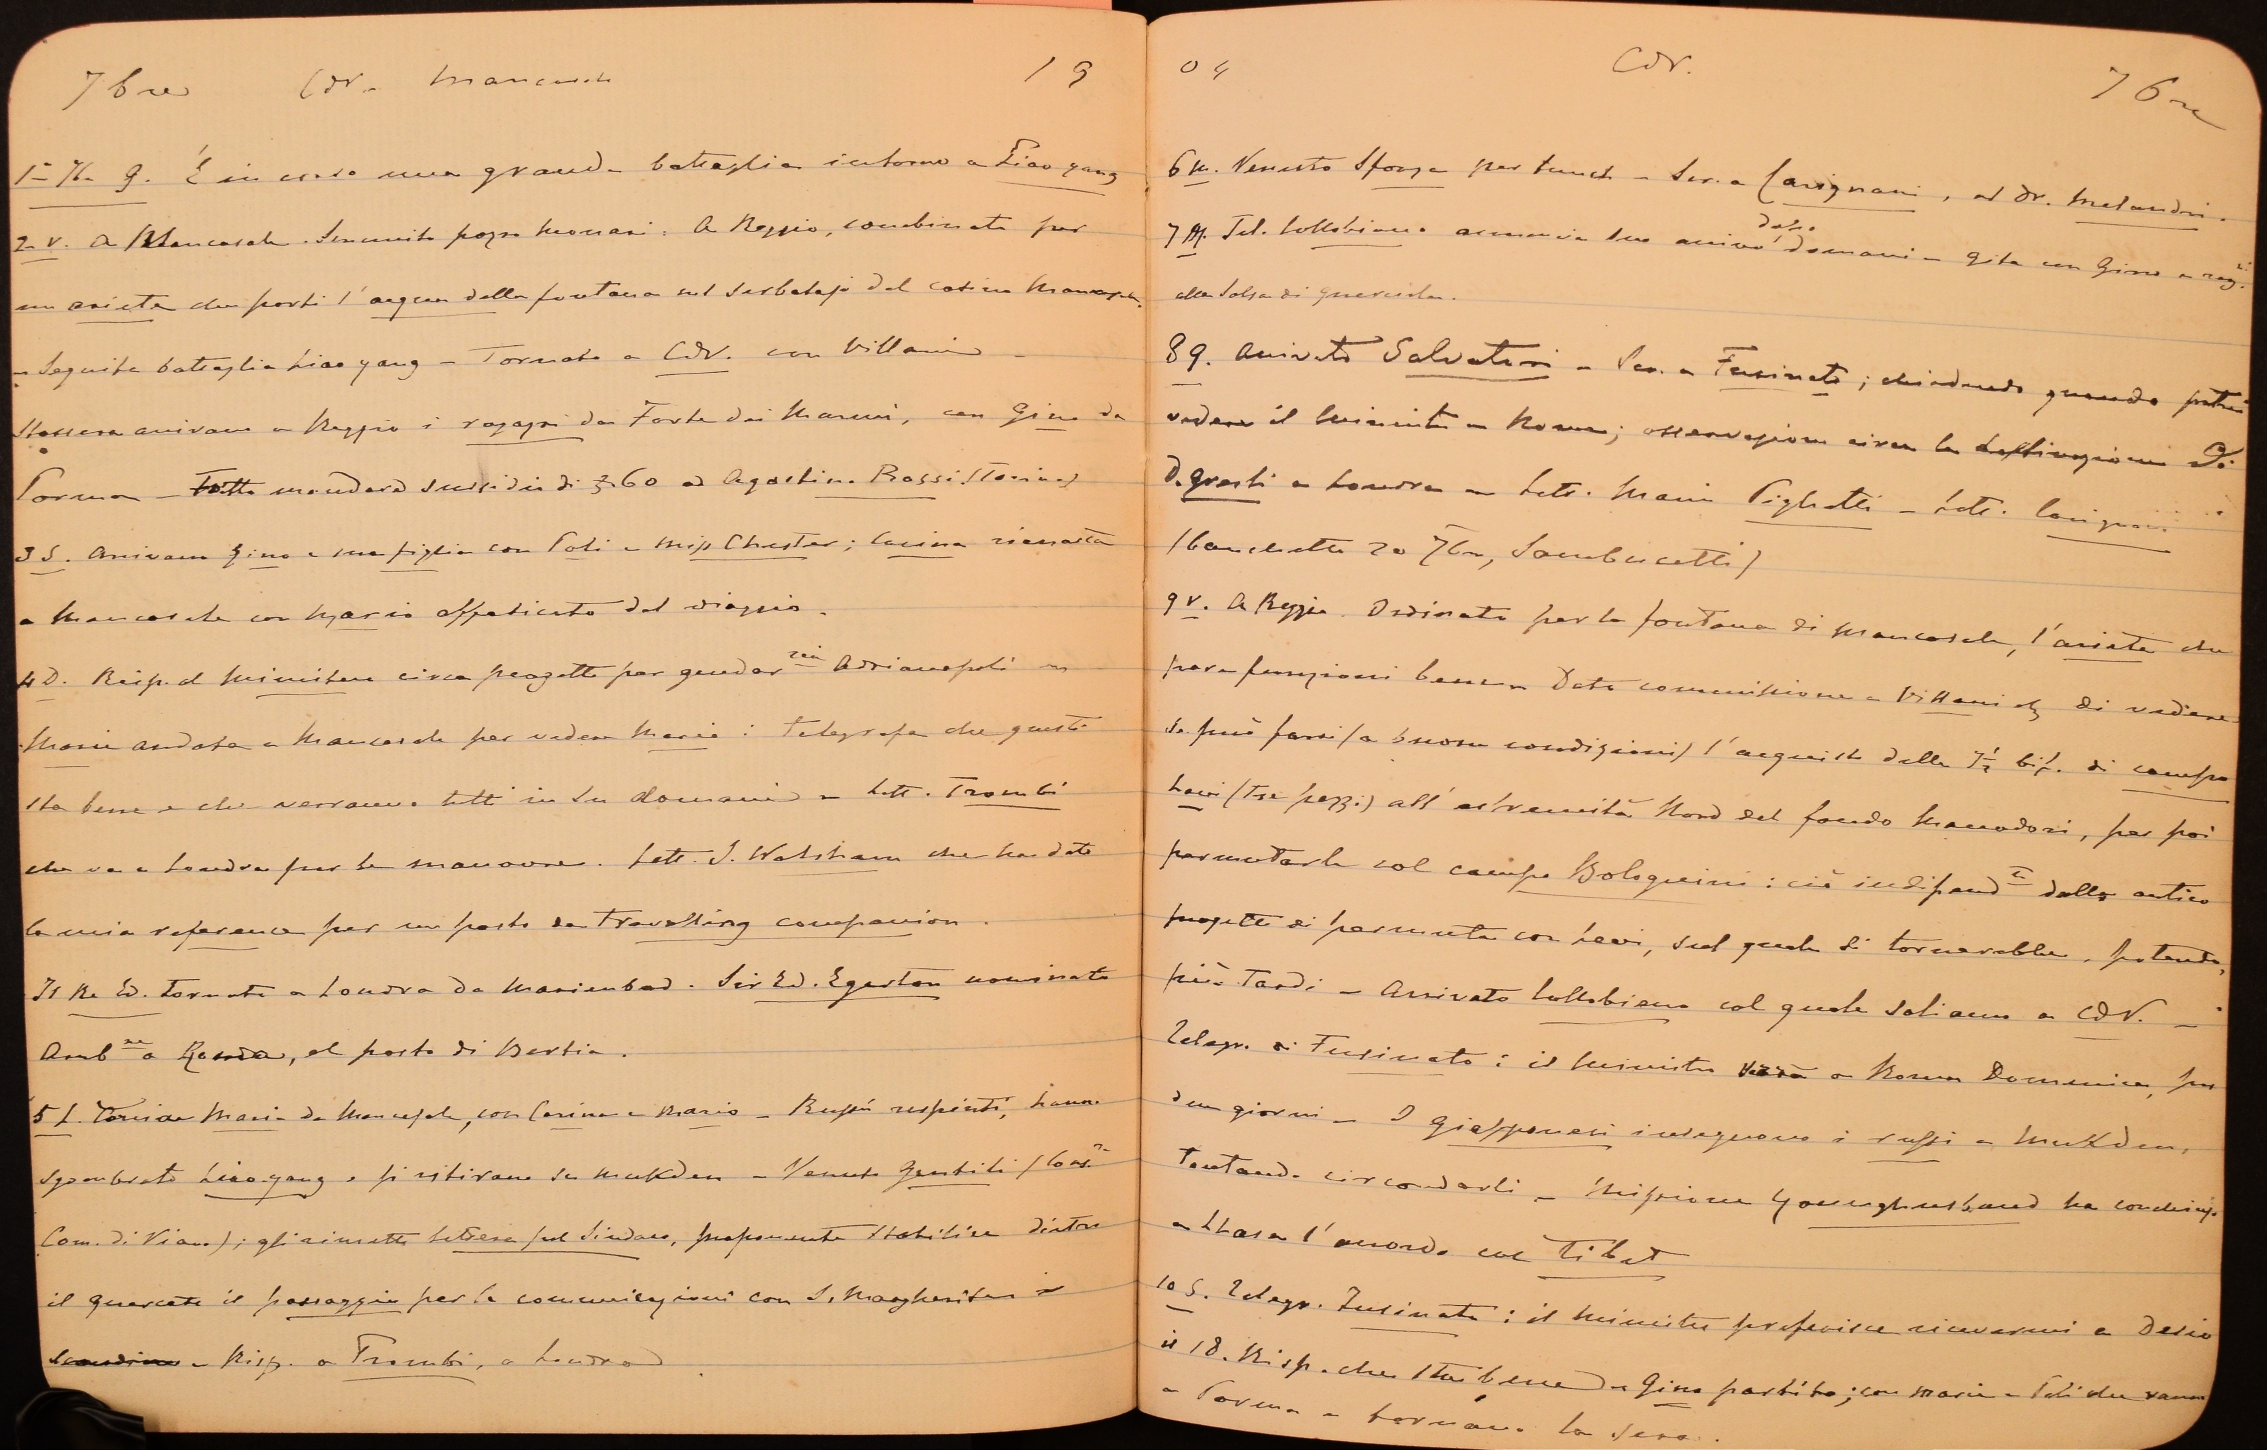 7bre CdV. Mancasale 19
1º 7bre G. È in corso una grande battaglia intorno a Liao yang
2 V. A Mancasale. A Reggio, combinata per
un ariete che porti l'acqua della fontana nel serbatojo del casino Mancasale.
– Seguita battaglia Liao yang – Tornato a CdV. con Villani –
Stassera arrivano a Reggio i ragazzi da Forte dei Marmi, con Gino da
Parma – mandare sussidio di £ 60 ad Agostino Rossi (Torino)
3 S. Arrivano Gino e sua figlia con Poli e miss Chester; Carina rimasta
a Mancasale con Mario affaticato dal viaggio.
4 D. Risp. al Ministero circa progetto per gendar ria Adrianopoli –
Maria andata a Mancasale per vedere Mario: telegrafa che questi
sta bene e che verranno tutti in su domani – Lett. Trombi
che va a Londra per le manovre. Lett. S. Walsham che ha dato
la mia reference per un posto da travelling companion.
Il Re Ed. tornato a Londra da Marienbad. Sir Ed. Egerton nominato
Amb re a Roma, al posto di Bertie.
5 L. Maria da Mancasale, con Carina e Mario – Russi respinti, hanno
sgombrato Liao-yang e si ritirano su Mukden – Venuto Gentili (Cons.
Com. di Viano); gli rimetto lettera pel Sindaco, proponente stabilire dietro
il Querceto il passaggio per le comunicazioni con S. Margherita e
Scandiano – Risp. a Trombi, a Londra.
04 CdV. 7bre
6 M. Venuto Sforza per lunch – Scr. a Carignani, al Dr. Melandri.
7 M. Tel. Lollobiano annunzia suo arrivo dopo domani – gita con Gino e rag.zi
alla Salsa di Querciola.
8 G. Arrivato Salvatori – Scr. a Fusinato; chiedendo quando potrei
vedere il Ministro a Roma; osservazioni circa la destinazione di
D. Grazi a Londra – Lett. Maria Pigliatti – Lett. Carignani
(banchetto 20 7bre, Sambucetti)
9 V. A Reggio. Ordinato per la fontana di Mancasale, l'ariete che
pare funzioni bene – Data commissione a Villani di vedere
se può farsi (a buone condizioni) l'acquisto delle 7½ bif. di campo
Levi (tre pezzi) all'estremità Nord del fondo Manodori, per poi
permutarle col campo Bolognini: ciò indipend te dallo antico
progetto di permuta con Levi, sul quale si tornerebbe, potendo,
più tardi – Arrivato Lollobiano col quale saliamo a CdV. –
Telegr. di Fusinato: il Ministro sarà a Roma Domenica, per
due giorni – I Giapponesi inseguono i russi a Mukden,
tentando circondarli – Missione Younghusband ha conchiuso
a Lhasa l'accordo col Tibet
10 S. Telegr. Fusinato: il Ministro preferisce ricevermi a Desio
il 18. Risp. che sta bene – Gino partito; con Maria e Poli che vanno
a Parma e tornano la sera.